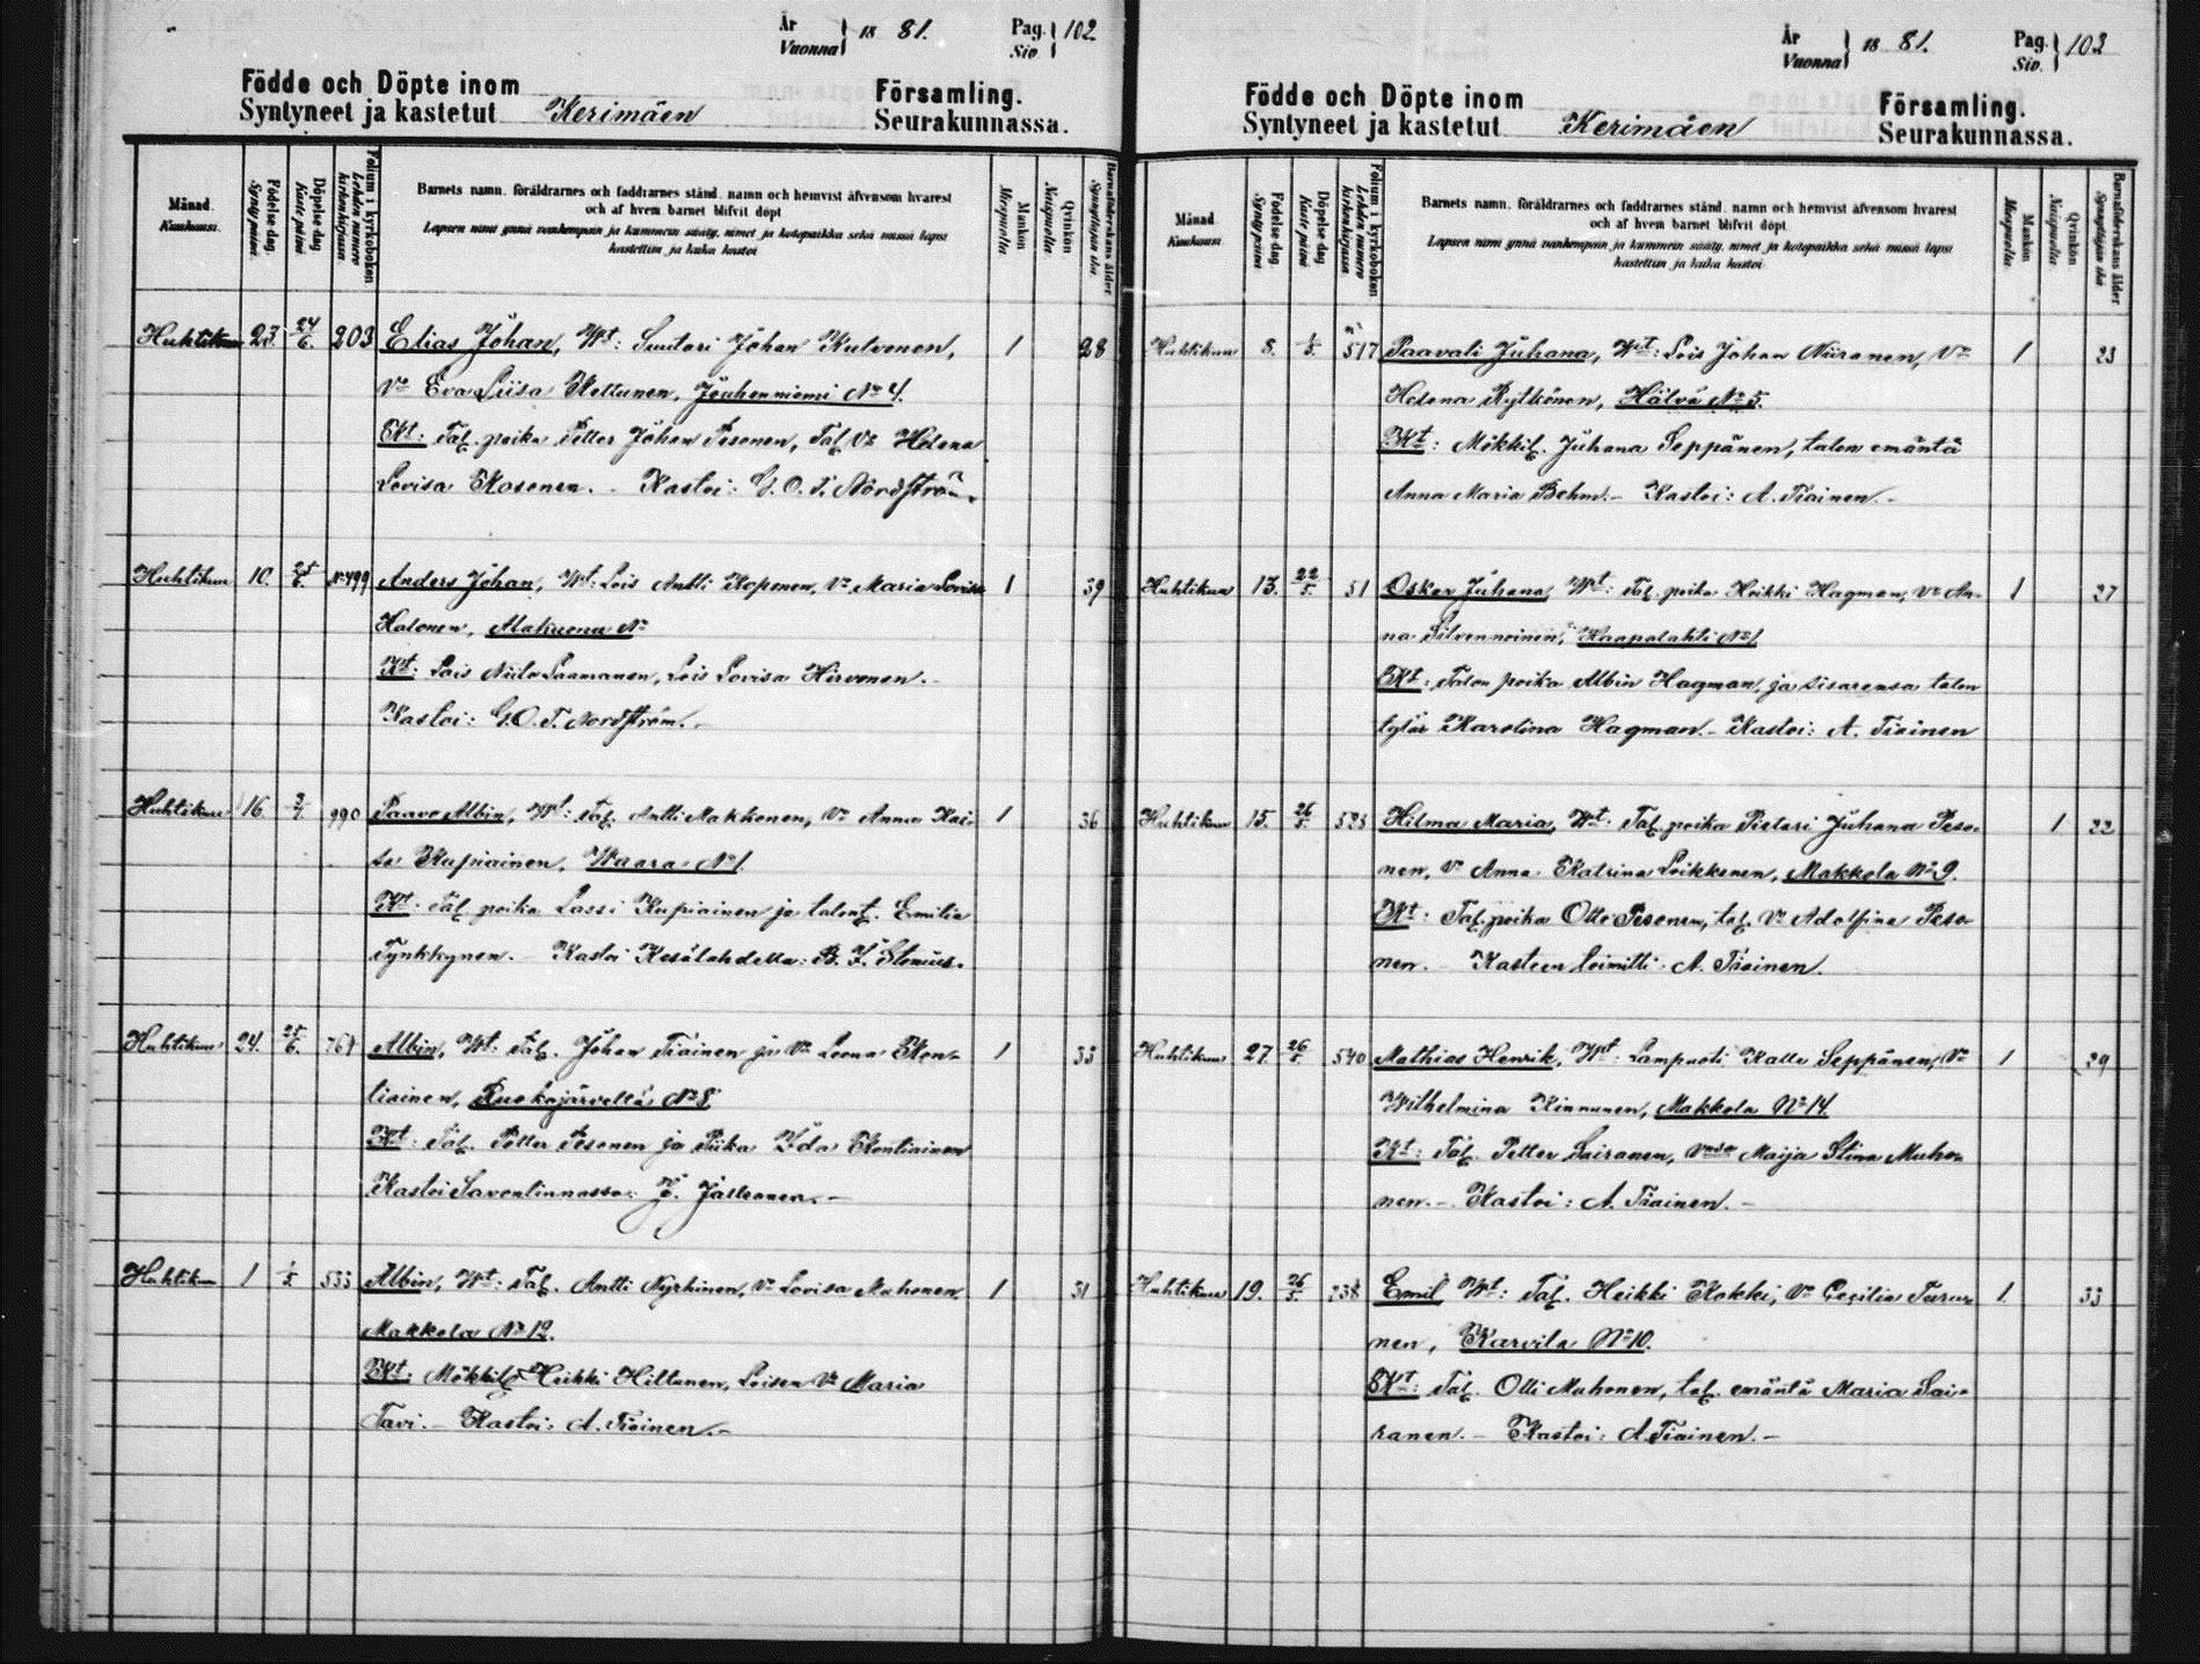 År
Vuonna 18 81.
Pag.
Siv. 102
Födde och Döpte inom
Syntyneet ja kastetut Kerimäen
Församling.
Seurakunnassa.
Månad.
Kuukausi.
Födelse dag.
Synty päivä
Döpelse dag
Kaste päivä
Folium i kyrkoboken
Lehden numero kirkonkirjassa
Barnets namn, föräldrarnes och faddrarnes stånd, namn och hemvist äfvensom hvarest
och af hvem barnet blifvit döpt
Lapsen nimi ynnä vanhempain ja kummein sääty, nimet ja kotopaikka sekä missä lapsi
kastettiin ja kuka kastoi
Mankön
Miespuolia
Qvinkön
Naispuolia
Barnaföderskans ålder
Synnyttäjän ikä
Huhtikuu 23. 24/6. 203 Elias Johan, Wt: Suutari Johan Kutvonen, 1 28
Vo Eva Liisa Kettunen, Jouhenniemi No 4.
Kt: Tal. poika Petter Johan Pesonen, Tal. Vo Helena
Lovisa Kosonen. - Kastoi: G. O. T. Nordström.
Huhtikuu 10. 25/6. No 499 Anders Johan, Wt: Lois Antti Koponen, Vo Maria Lovisa 1 39
Halonen, Alakuona No
Kt: Lois Niilo Laamanen, Lois Lovisa Hirvonen.
Kastoi: G. O. T. Nordström. -
Huhtikuu 16. 3/7. 990 Paavo Albin, Wt: Tal. Antti Makkonen, Vo Anna Kai- 1 36
sa Kupiainen, Waara No 1.
Kt: Tal. poika Lassi Kupiainen ja talont. Emilia
Tynkkynen. - Kastoi Kesälahdella: B. F. Stenius.
Huhtikuu 24. 25/6. 761 Albin, Wt: Tal. Johan Tiainen ja Vo Leena Kon- 1 33
tiainen, Ruokojärveltä No 8
Kt: Tal. Petter Pesonen ja Piika Ida Kontiainen
Kastoi Savonlinnassa: J. Jäskeonen. -
Huhtikuu 1 1/5. 533 Albin, Wt: Tal. Antti Nyrhinen, Vo Lovisa Muhonen, 1 31
Makkola No 12.
Kt: Mökkil. Heikki Hiltunen, Loisen Vo Maria
Tavi. - Kastoi: A. Tiainen. -
År
Vuonna 18 81.
Pag.
Siv. 103
Födde och Döpte inom
Syntyneet ja kastetut Kerimäen
Församling.
Seurakunnassa.
Månad
Kuukausi
Födelse dag
Synty päivä
Döpelse dag
Kaste päivä
Folium i kyrkoboken
Lehden numero kirkonkirjassa
Barnets namn, föräldrarnes och faddrarnes stånd, namn och hemvist äfvensom hvarest
och af hvem barnet blifvit döpt
Lapsen nimi ynnä vanhempain ja kummein sääty, nimet ja kotopaikka sekä missä lapsi
kastettiin ja kuka kastoi
Mankön
Miespuolia
Qvinkön
Naispuolia
Barnaföderskans ålder
Synnyttäjän ikä
Huhtikuu 8. 1/5. 517 Paavali Juhana, Wt: Lois Johan Niiranen, Vo 1 23
Helena Rytkönen, Hälvä No 5.
Kt: Mökkil. Juhana Seppänen, talon emäntä
Anna Maria Behm. - Kastoi: A. Tiainen. -
Huhtikuu 13. 22/5. 51 Oskar Juhana, Wt: Tal. poika Heikki Hagman, Vo An- 1 27
na Silvennoinen, Haapalahti No 1
Kt: Talon poika Albin Hagman, ja sisarensa talon
tytär Karolina Hagman. - Kastoi: A. Tiainen
Huhtikuu 15. 26/5. 525 Hilma Maria, Wt: Tal. poika Pietari Juhana Peso- 1 22
nen, Vo Anna Katrina Loikkanen, Makkola No 9.
Kt: Tal. poika Otto Pesonen, tal. Vo Adolfina Peso-
nen. Kasteen toimitti: A. Tiainen.
Huhtikuu 27. 26/5. 540 Mathias Henrik, Wt: Lampuoti Kalle Seppänen, Vo 1 29
Wilhelmina Kinnunen, Makkola No 14.
Kt: Tal. Petter Sairanen, Maija Stina Muho-
nen. - Kastoi: A. Tiainen. -
Huhtikuu 19. 26/5. 238 Emil, Wt: Tal. Heikki Kokki, Vo Cecilia Turu- 1. 33
nen, Karvila No 10.
Kt: Tal. Olli Muhonen, tal. emäntä Maria Sai-
ranen. - Kastoi: A. Tiainen. -